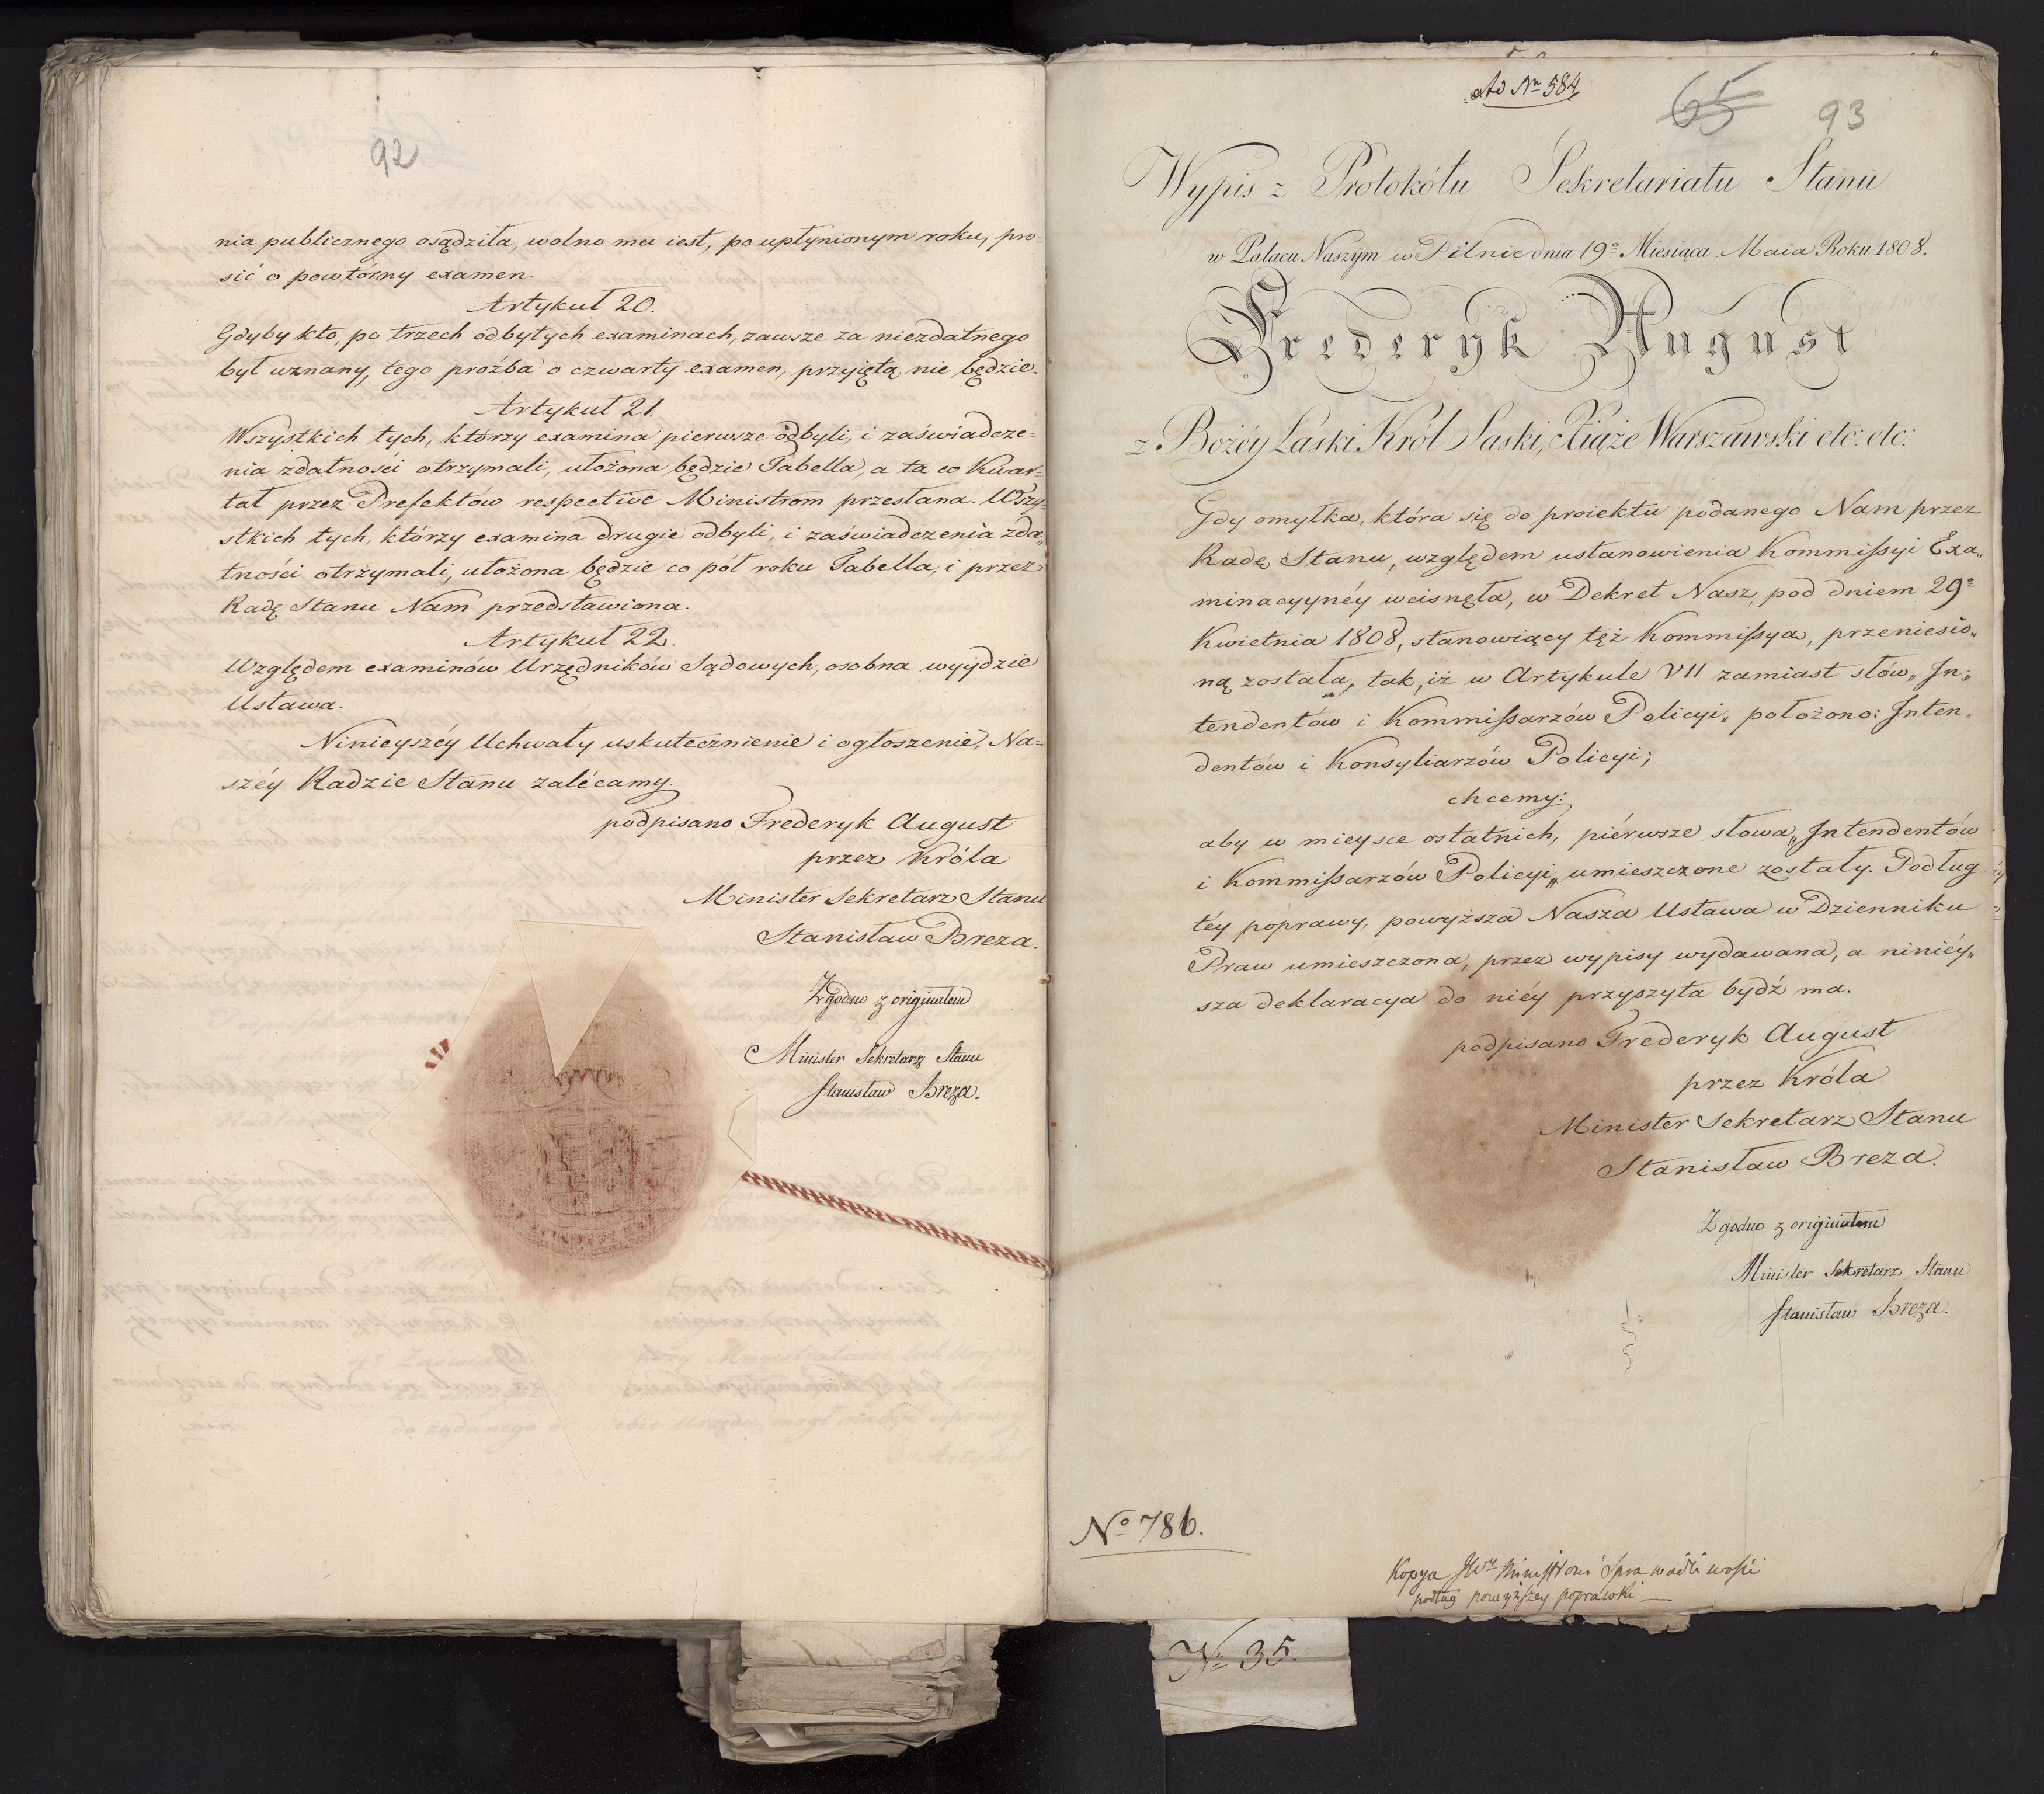 92
nia publicznego osądziła, wolno mu iest, po upłynionym roku, pro=
sić o powtórny examen.
Artykuł 20.
Gdyby kto, po trzech odbytych examinach, zawsze za niezdatnego
był uznany, tego proźba o czwarty examen, przyiętą nie będzie.
Artykuł 21.
Wszystkich tych, którzy examina pierwsze odbyli, i zaświadcze=
nia zdatności otrzymali, ułożona będzie Tabella, a ta co Kwar=
tał przez Prefektów respective Ministrom przesłana. Wszy=
stkich tych, którzy examina drugie odbyli, i zaświadczenia zda„
tności otrzymali, ułożona będzie co pół roku Tabella, i przez
Radę Stanu Nam przedstawiona.
Artykuł 22.
Względem examinów Urzędników Sądowych, osobna wyydzie
Ustawa.
Ninieyszéy Uchwały uskutecznienie i ogłoszenie, Na=
széy Radzie Stanu zalécamy.
podpisano Frederyk August
przez Króla
Minister Sekretarz Stanu
Stanisław Breza.
Zgodno z originałem
Minister Sekretarz Stanu
Stanisław Breza.
Ad Nrn 584
65 93
Wypis z Protokółu Sekretariatu Stanu
w Pałacu Naszym w Pilnie dnia 19o Miesiąca Maia Roku 1808.
Frederyk August
z Bożéy Łaski Król Saski, Xiąże Warszawski etc: etc:
Gdy omyłka, która się do proiektu podanego Nam przez
Radę Stanu, względem ustanowienia Kommissyi Exa„
minacyynéy wcisnęła, w Dekret Nasz, pod dniem 29o
Kwietnia 1808, stanowiący tęż Kommissya, przeniesio„
ną została, tak, iż w Artykule VII zamiast słów „In„
tendentów i Kommissarzów Policyi„ położono: Inten„
dentów i Konsyliarzów Policyi;
chcemy:
aby w mieysce ostatnich, piérwsze słowa „Intendentów
i Kommissarzów Policyi„ umieszczone zostały. Podług
téy poprawy, powyższa Nasza Ustawa w Dzienniku
Praw umieszczona, przez wypisy wydawana, a niniéy„
sza deklaracya do niéy przyszyta bydź ma.
podpisano Frederyk August
przez Króla
Minister Sekretarz Stanu
Stanisław Breza.
Zgodno z originałem
Minister Sekretarz Stanu
Stanisław Breza.
No 786.
Kopya JWu Ministrowi Sprawiedliwości
podług powyższey poprawki —
No 35.